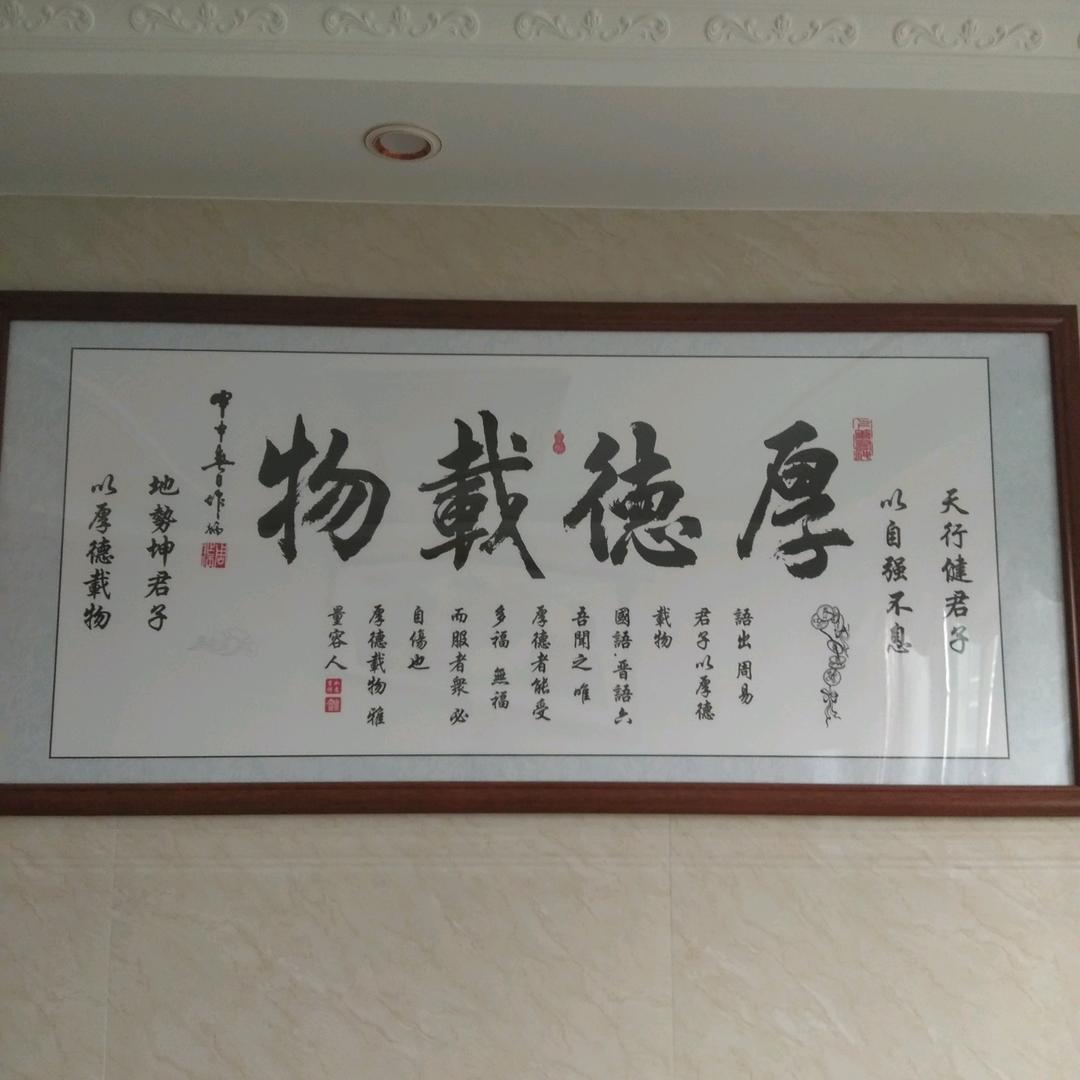 天行健君子
以自强不息
厚德載物
語出周易
君子以厚德
載物
國語·晋語六
吾聞之唯
厚德者能受
多福無福
而服者衆必
自傷也
厚德載物雅
量容人
地勢坤君子
以厚德載物